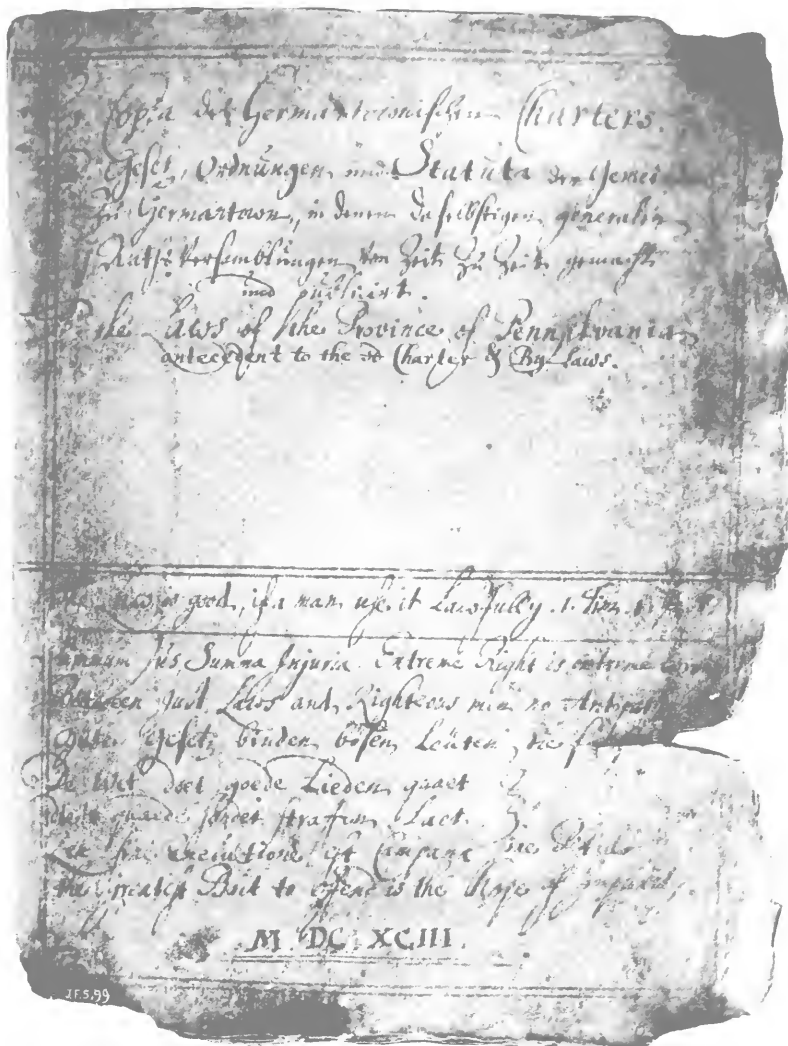 Copia des Germantownischen Charters.
Gesetz, Ordnungen und Statuta der Gemei
zu Germantown, in denen daselbstigen generalen
Raths Versamblungen von Zeit zu Zeit gemacht
und publicirt.
the Laws of the Province of Pennsilvania
antecedent to the sd Charter & By-Laws.
is good, if a man use it Lawfully. 1. Tim. 1.
Jus, Summa Injuria. Extreme Right is extreme
Between Just Laws and Righteous men no Antipat
Gesetz binden bösen Leuten
De Wet doet goede Lieden quaet
straffen Laet.
sine executione est Campana sine Pistillo
the greatest Bait to offend is the Hope of Impunity.
M DC XCIII.
2F.5.99